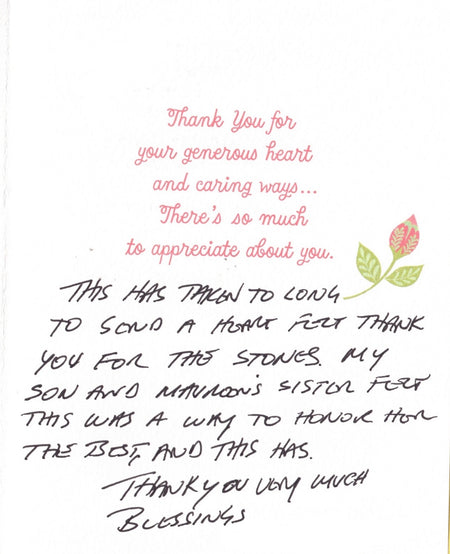 Thank You for
your generous heart
and caring ways...
There's so much
to appreciate about you.
THIS HAS TAKEN TO LONG
TO SEND A HEART FELT THANK
YOU FOR THE STONES. MY
SON AND MAUREEN'S SISTER FELT
THIS WAS A WAY TO HONOR HER
THE BEST, AND THIS HAS.
THANK YOU VERY MUCH
BLESSINGS